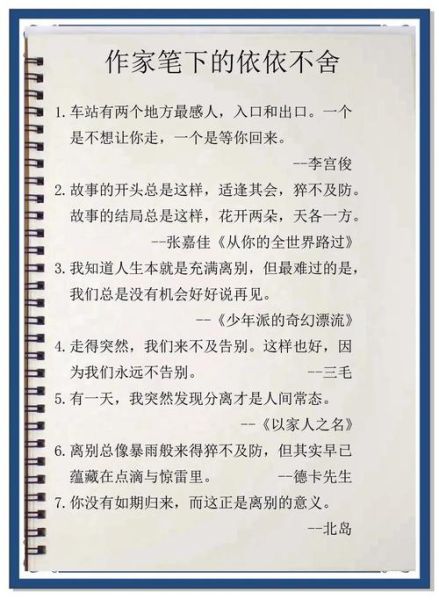 作家笔下的依依不舍
1. 车站有两个地方最感人，入口和出口。一个
是不想让你走，一个是等你回来。
--李宫俊
2. 故事的开头总是这样，适逢其会，猝不及防。
故事的结局总是这样，花开两朵，天各一方。
--张嘉佳《从你的全世界路过》
3. 我知道人生本就是充满离别，但最难过的是，
我们总是没有机会好好说再见。
--《少年派的奇幻漂流》
4. 走得突然，我们来不及告别。这样也好，因
为我们永远不告别。 --三毛
5. 有一天，我突然发现分离才是人间常态。
--《以家人之名》
6. 离别总像暴雨般来得猝不及防，但其实早已
蕴藏在点滴与惊雷里。 --德卡先生
7. 你没有如期归来，而这正是离别的意义。
--北岛